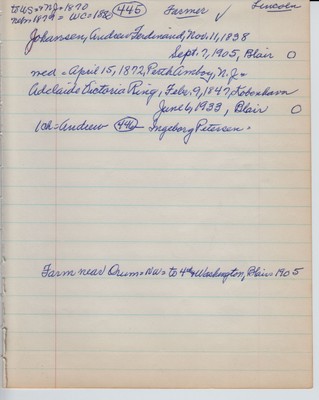 to US = NJ = 1870 445 Farmer ✓ Lincoln
Nebr 1879 = WC = 1880
Johansen, Andrew Ferdinand, Nov. 11, 1838
Sept. 7, 1905, Blair O
med = April 15, 1872, Perth Amboy, N.J. =
Adelaide Victoria Ring, Febr. 9, 1847, Kobenhavn
June 6, 1933, Blair O
1 ch = Andrew 446 Ingeborg Petersen =
Farm near Orum = Nw = to 4th + Washington, Blair = 1905